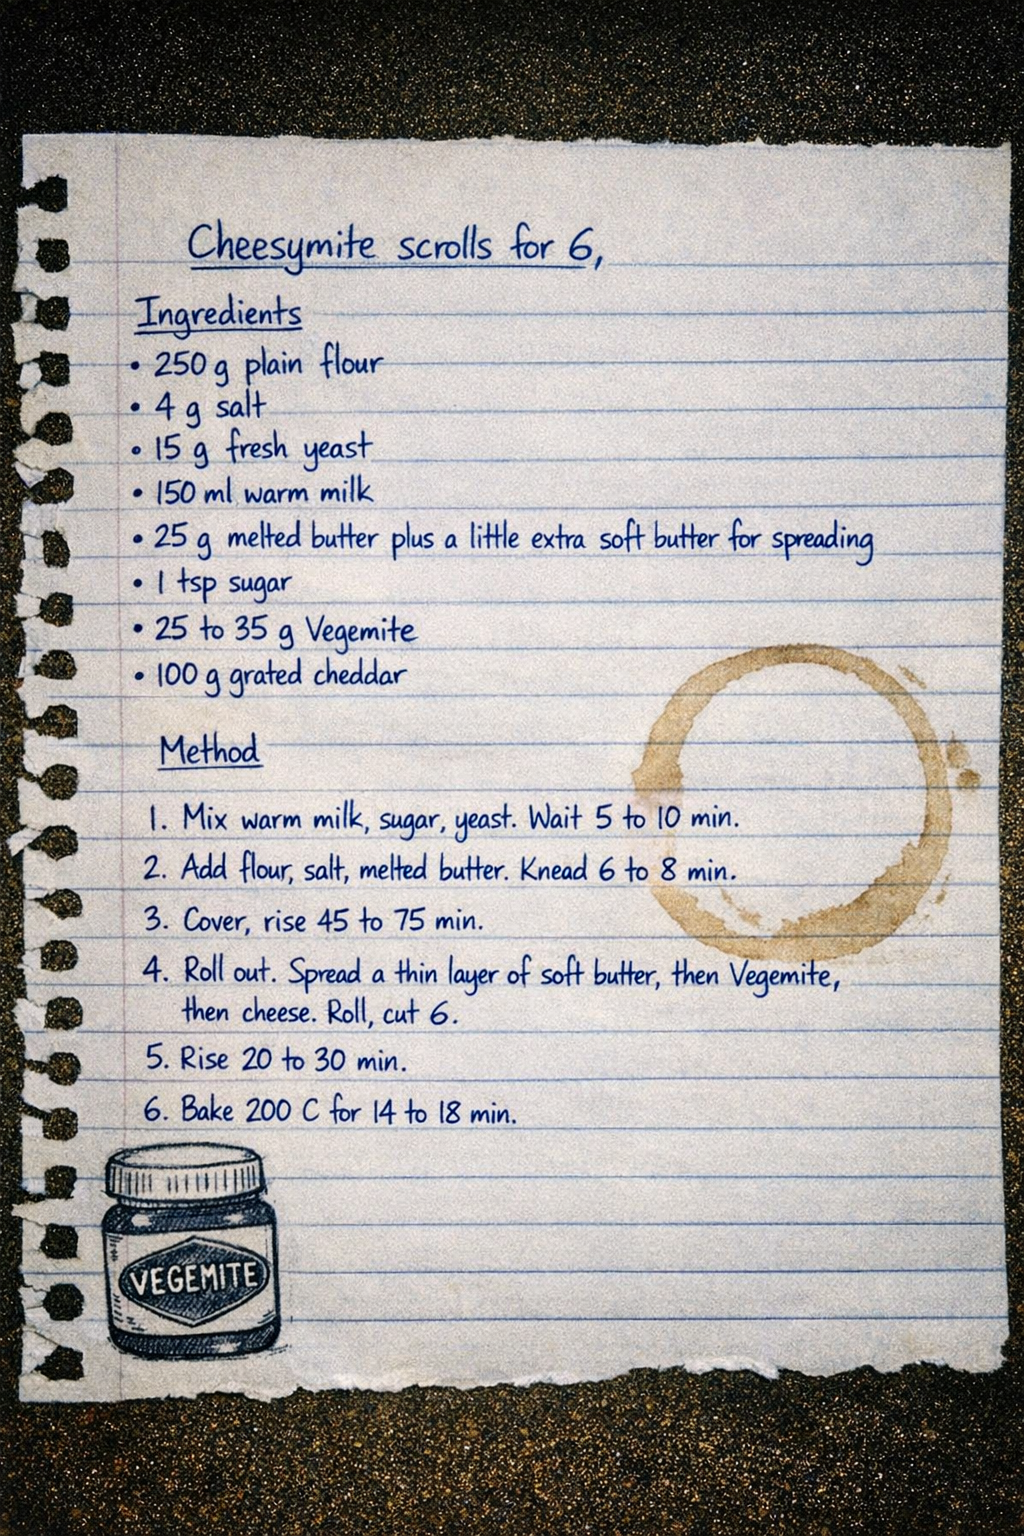 Cheesymite scrolls for 6,
Ingredients
• 250 g plain flour
• 4 g salt
• 15 g fresh yeast
• 150 ml warm milk
• 25 g melted butter plus a little extra soft butter for spreading
• 1 tsp sugar
• 25 to 35 g Vegemite
• 100 g grated cheddar
Method
1. Mix warm milk, sugar, yeast. Wait 5 to 10 min.
2. Add flour, salt, melted butter. Knead 6 to 8 min.
3. Cover, rise 45 to 75 min.
4. Roll out. Spread a thin layer of soft butter, then Vegemite,
then cheese. Roll, cut 6.
5. Rise 20 to 30 min.
6. Bake 200 C for 14 to 18 min.
VEGEMITE